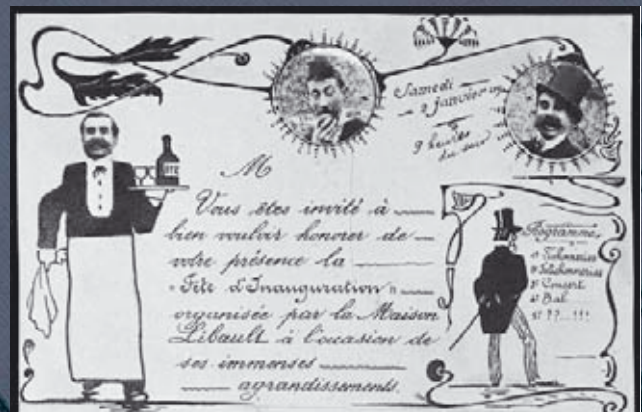 Samedi
2 janvier
9 heures
du soir
M
Vous êtes invité à
bien vouloir honorer de
votre présence la
"Fête d'Inauguration"
organisée par la Maison
Libault à l'occasion de
ses immenses
agrandissements.
Programme
1º
2º
3º Concert
4º Bal
5º ??...!!!